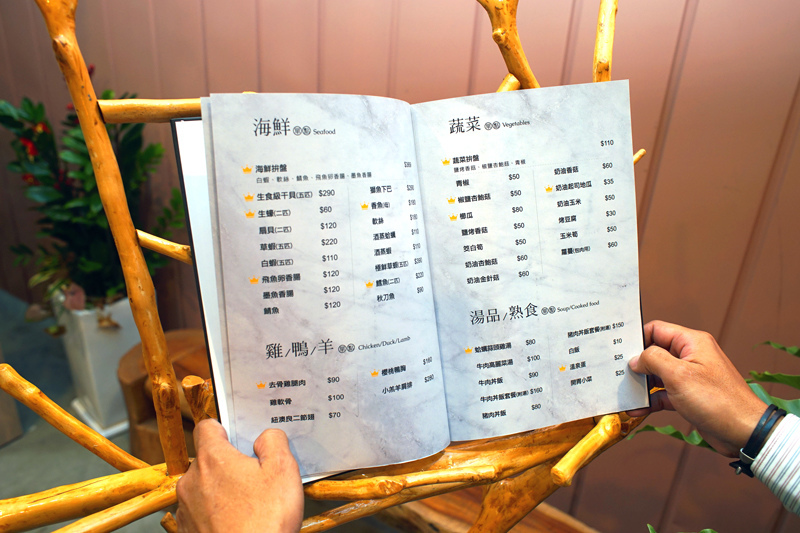 海鮮 單點 Seafood
海鮮拼盤
白蝦、軟絲、鯛魚、飛魚卵香腸、墨魚香腸
生食級干貝(五匹) $290
生蠔(二匹) $60
扇貝(二匹) $120
草蝦(五匹) $220
白蝦(五匹) $110
飛魚卵香腸 $120
墨魚香腸 $120
鯛魚 $120
鄉魚下巴
香魚(母)
軟絲
酒蒸蛤蠣
酒蒸蝦
極鮮草蝦(五匹)
鱈魚(二匹)
秋刀魚
雞/鴨/羊 單點 Chicken/Duck/Lamb
去骨雞腿肉 $90
雞軟骨 $100
紐澳良二節翅 $70
櫻桃鴨胸 $160
小羔羊肩排 $280
蔬菜 單點 Vegetables
蔬菜拼盤 $110
鹽烤香菇、椒鹽杏鮑菇、青椒
青椒 $50
椒鹽杏鮑菇 $50
櫛瓜 $80
鹽烤香菇 $50
筊白筍 $50
奶油杏鮑菇 $60
奶油金針菇 $60
奶油香菇 $60
奶油起司地瓜 $35
奶油玉米 $50
烤豆腐 $30
玉米筍 $50
蘿蔓(包肉用) $60
湯品/熟食 單點 Soup/Cooked food
蛤蠣蒜頭雞湯 $80
牛肉高麗菜湯 $100
牛肉丼飯 $90
牛肉丼飯套餐(附湯) $160
豬肉丼飯 $80
豬肉丼飯套餐(附湯) $150
白飯 $10
溫泉蛋 $25
開胃小菜 $25